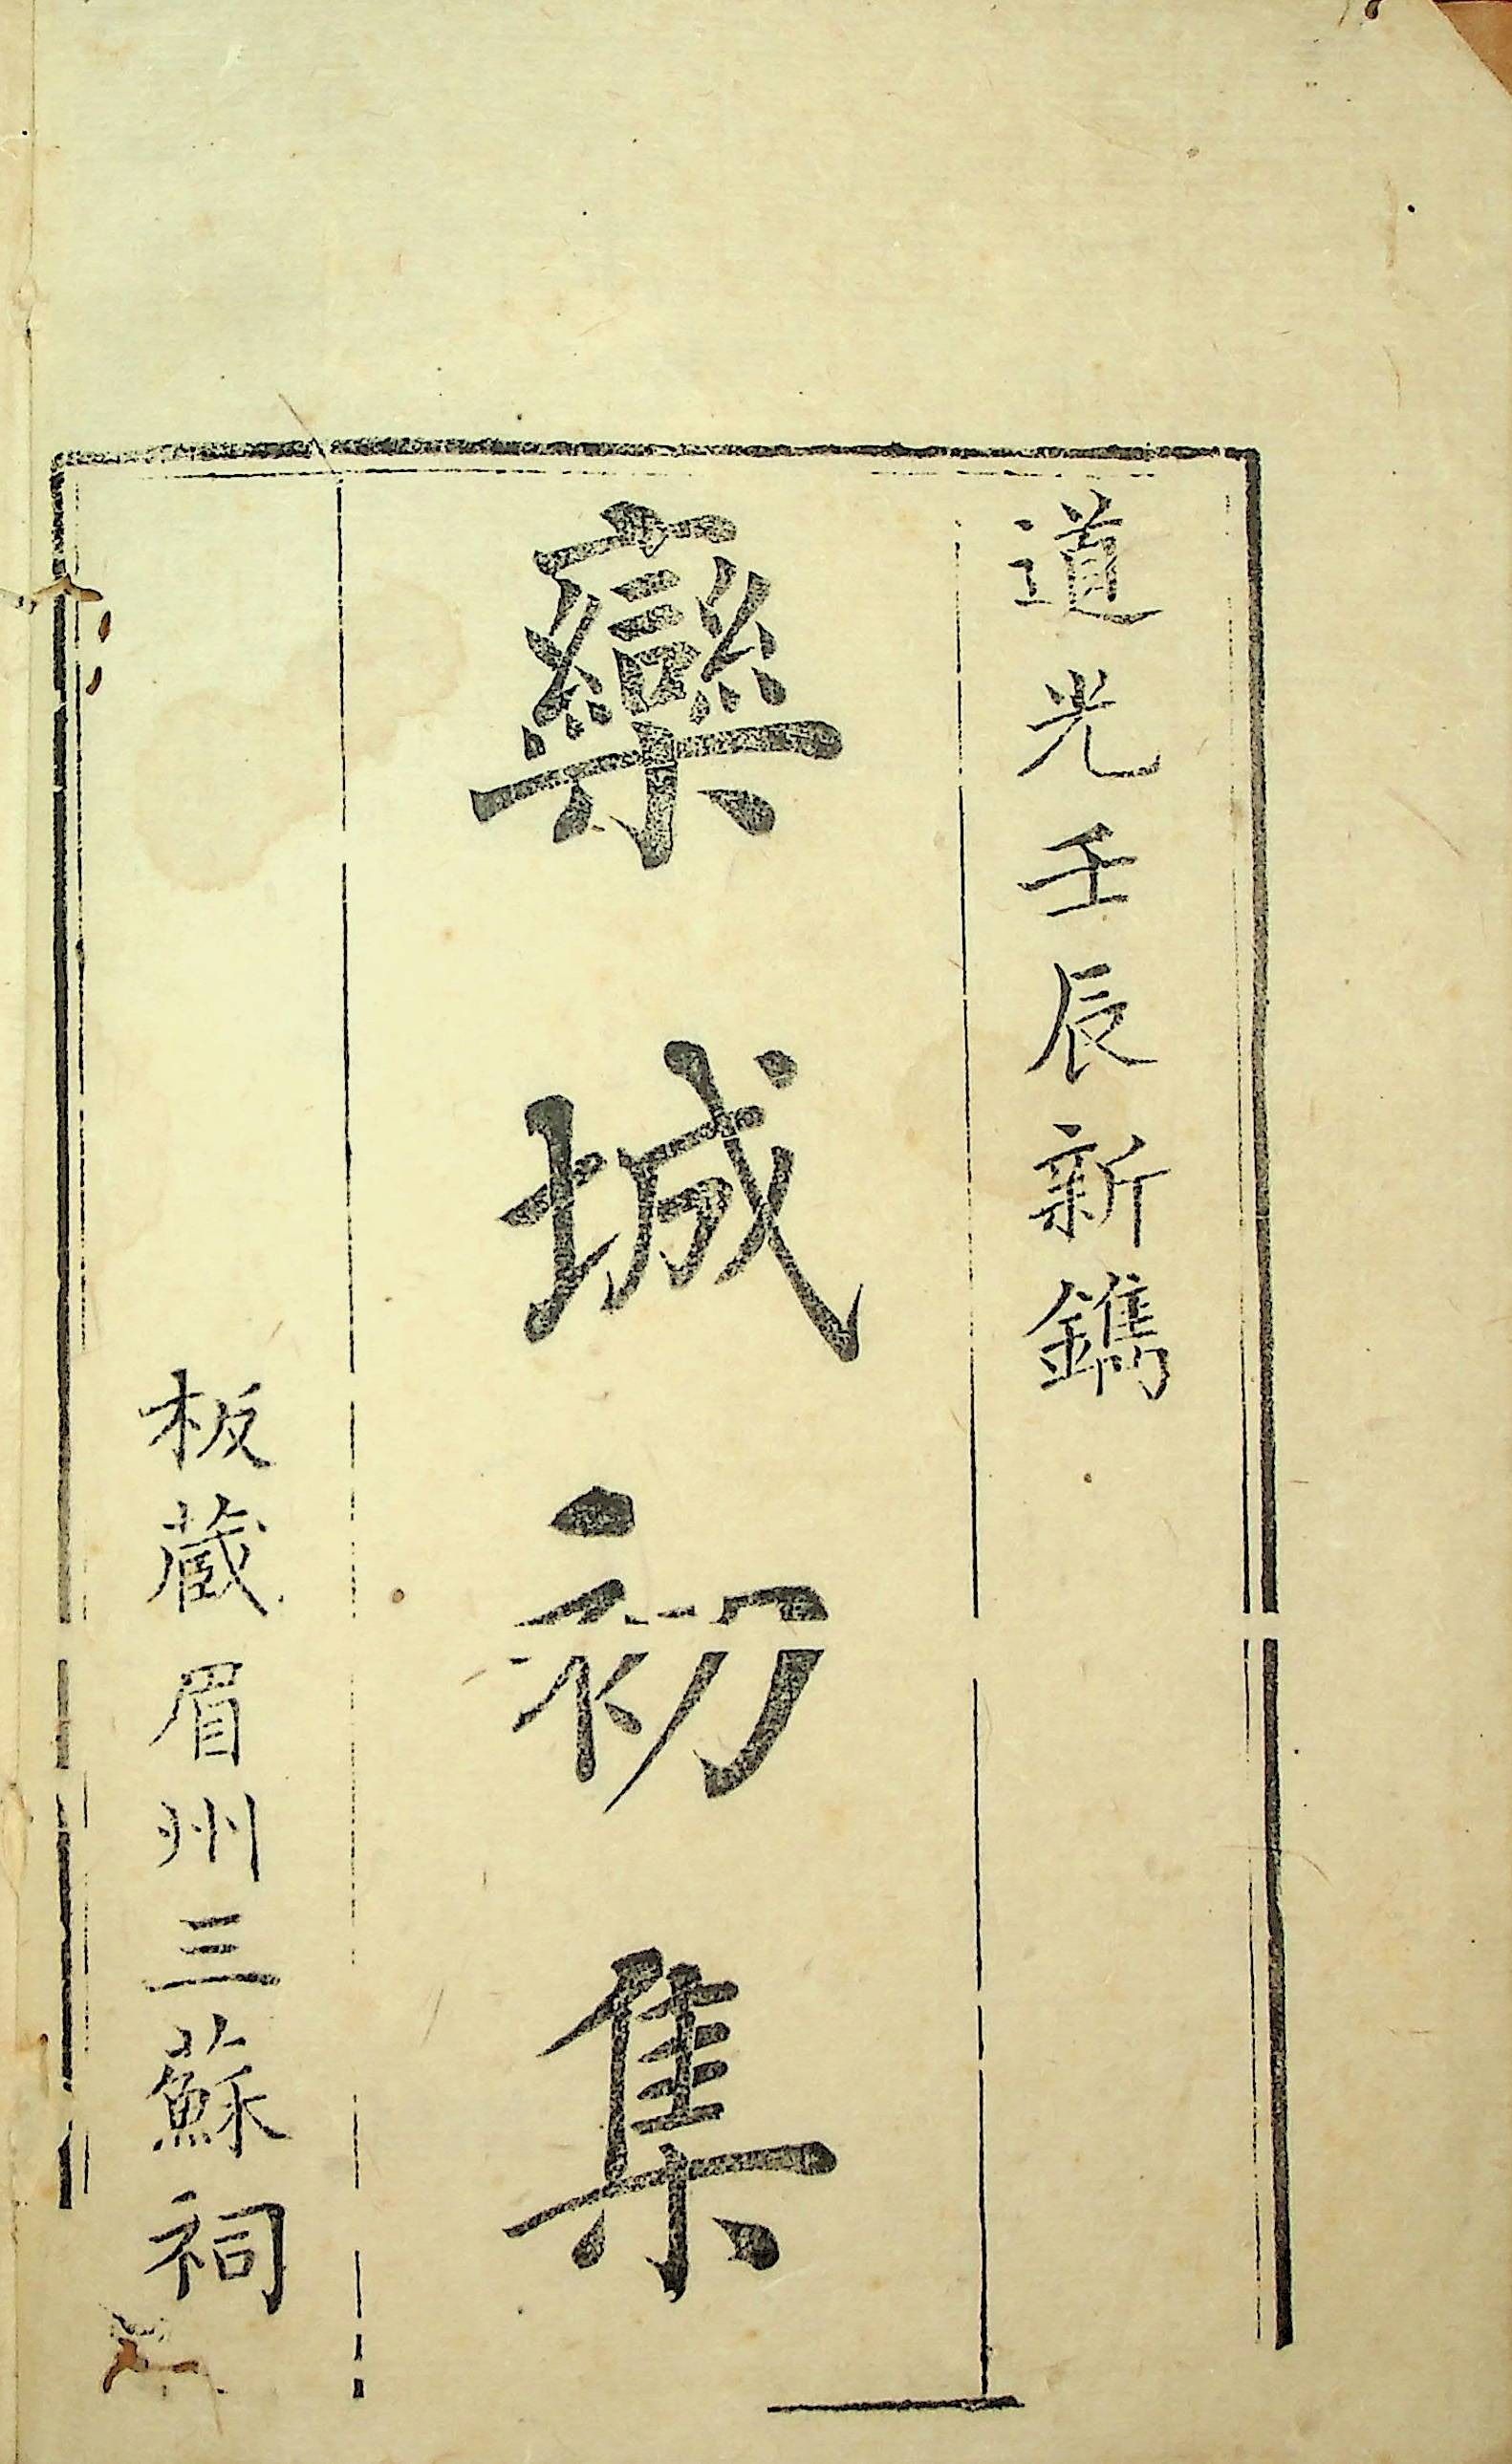 道光壬辰新鐫
欒城初集
板藏眉州三蘇祠